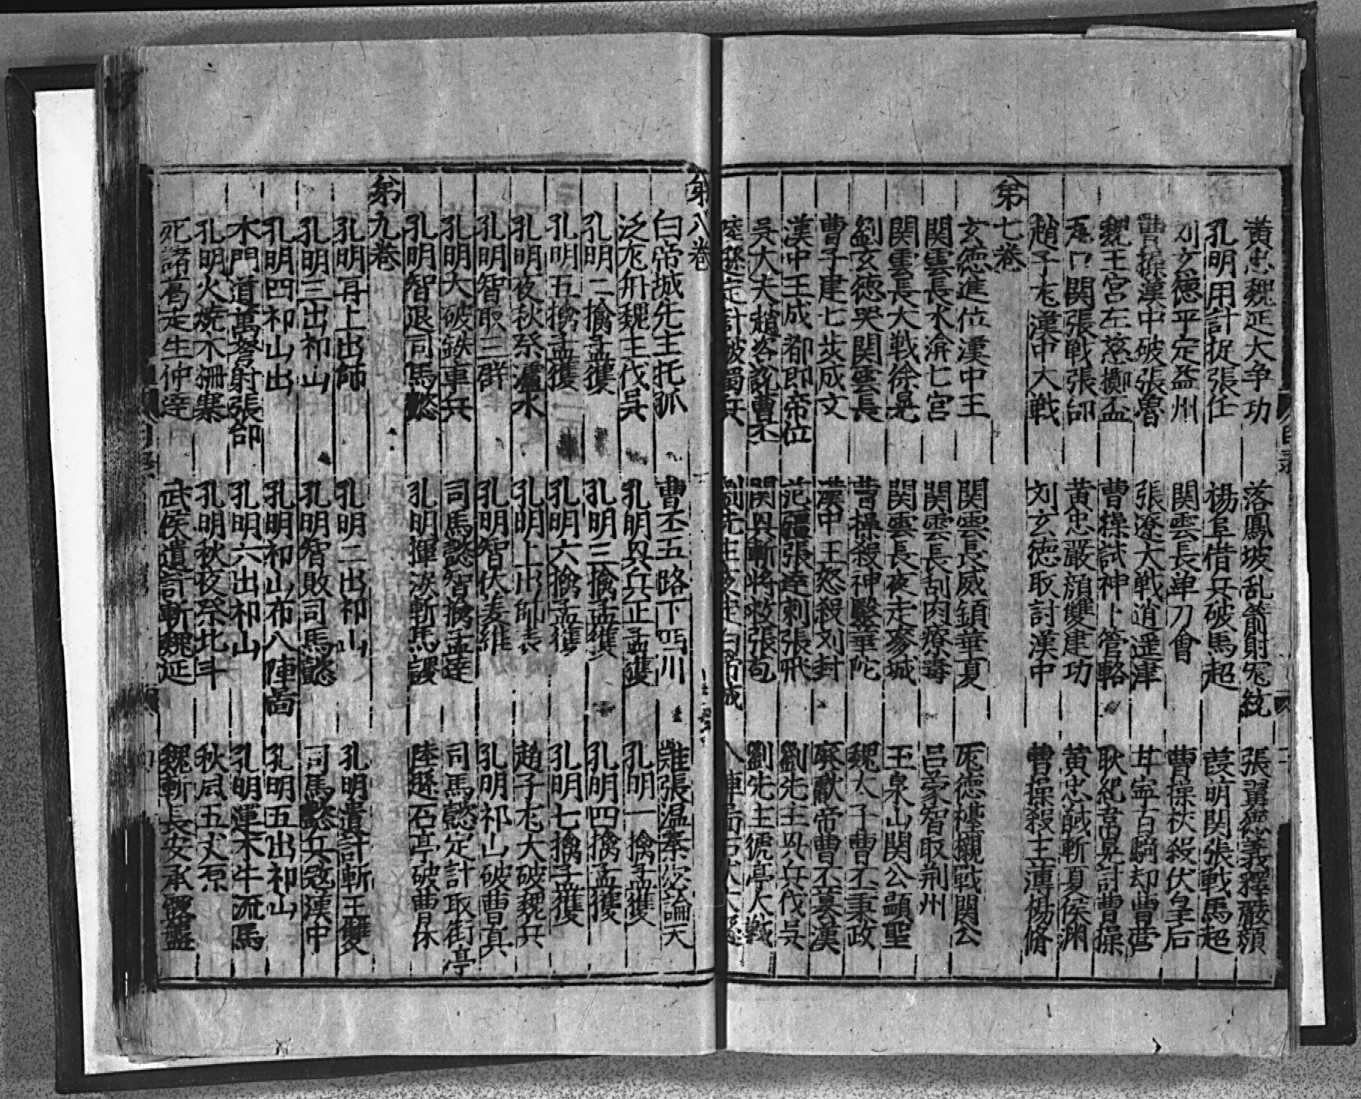 黄忠魏延大争功 落鳳坡乱箭射寇統 張翼德義釋嚴顔
孔明用計捉張任 楊阜借兵破馬超 葭明関張戦馬超
刘玄德平定益州 関雲長单刀會 曹操杖殺伏皇后
曹操漢中破張魯 張遼大戦逍遥津 甘寧百騎却曹营
魏王宫左慈擲盃 曹操試神卜管輅 耿紀韋晃討曹操
瓦口関張戦張郃 黄忠嚴顔雙建功 黄忠馘斬夏侯渊
趙子龙漢中大戦 刘玄徳取討漢中 曹操殺主簿楊脩
第七卷
玄德進位漢中王 関雲長威鎮華夏 庞德擡櫬戦関公
関雲長水渰七宫 関雲長刮肉療毒 吕蒙智取荆州
関雲長大戦徐晃 関雲長夜走麥城 玉泉山関公顕聖
劉玄徳哭関雲長 曹操殺神醫華陀 魏太子曹丕秉政
曹子建七步成文 漢中王怒殺刘封 廃献帝曹丕篡漢
漢中王成都即帝位 范疆張達刺張飛 劉先主興兵伐吴
吴大夫趙咨説曹丕 関興斬將救張苞 劉先主猇亭大戦
陸遜定計破蜀兵 劉先主夜走白帝城 八陣圖石伏陸遜
第八卷
白帝城先主托孤 曹丕五路下四川 難張温秦宓論天
泛龙舟魏主伐吴 孔明興兵征孟獲 孔明一擒孟獲
孔明二擒孟獲 孔明三擒孟獲 孔明四擒孟獲
孔明五擒孟獲 孔明六擒孟獲 孔明七擒孟獲
孔明夜秋祭瀘水 孔明上出師表 趙子龙大破魏兵
孔明智取三郡 孔明智伏姜維 孔明祁山破曹真
孔明大破鉄車兵 司馬懿智擒孟達 司馬懿定計取街亭
孔明智退司馬懿 孔明揮淚斬馬謖 陸遜石亭破曹休
第九卷
孔明再上出師 孔明二出祁山 孔明遺計斬王雙
孔明三出祁山 孔明智敗司馬懿 司馬懿兵寇漢中
孔明四祁山出 孔明祁山布八陣啚 孔明五出祁山
木門道萬弩射張郃 孔明六出祁山 孔明運木牛流馬
孔明火燒木柵寨 孔明秋夜祭北斗 秋风五丈原
死諸葛走生仲達 武侯遺計斬魏延 魏斬長安承露盤